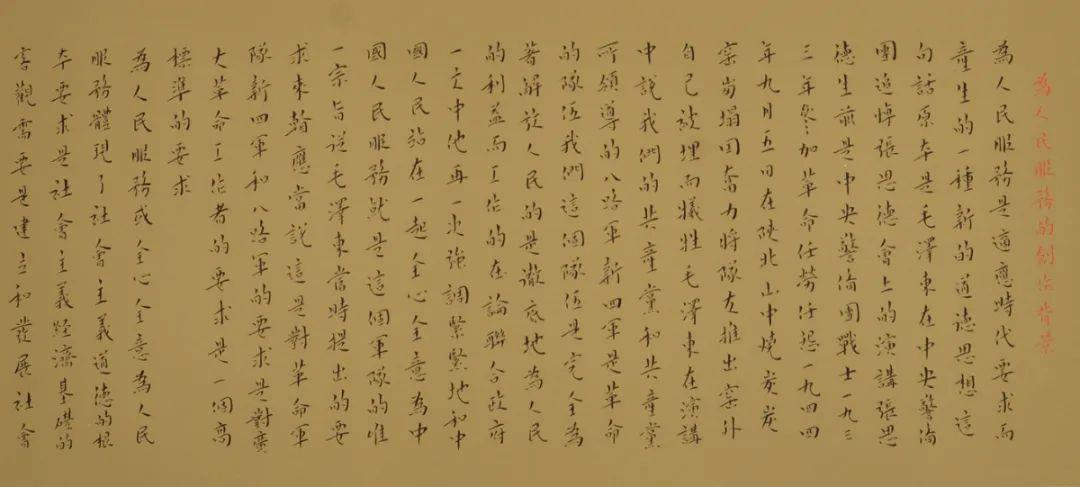 為人民服務的創作背景
為人民服務是適應時代要求而
產生的一種新的道德思想這
句話原本是毛澤東在中央警衛
團追悼張思德會上的演講張思
德生前是中央警衛團戰士一九三
三年參加革命任勞任怨一九四四
年九月五日在陝北山中燒炭炭
窯崩塌回奮力將隊友推出窯外
自己被埋而犧牲毛澤東在演講
中說我們的共產黨和共產黨
所領導的八路軍新四軍是革命
的隊伍我們這個隊伍是完全為
著解放人民的是徹底地為人民
的利益而工作的在論聯合政府
一文中他再一次強調緊緊地和中
國人民站在一起全心全意為中
國人民服務就是這個軍隊的唯
一宗旨從毛澤東當時提出的要
求來翰應當說這是對革命軍
隊新四軍和八路軍的要求是對廣
大革命工作者的要求是一個高
標準的要求
為人民服務或全心全意為人民
服務體現了社會主義道德的根
本要求是社會主義經濟基礎的
客觀需要是建立和發展社會